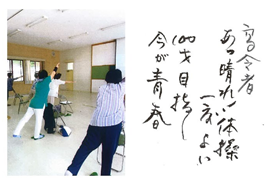 高令者
あっ晴れ！体操
一家よい
100才目指し
今が青春